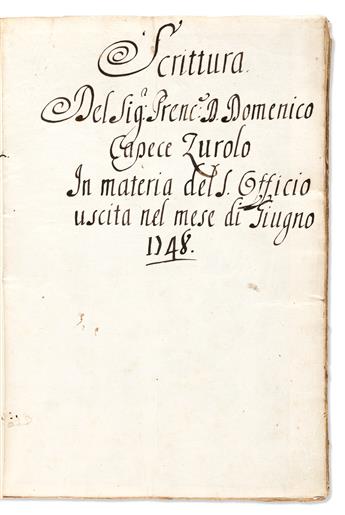 Scrittura.
Del Sig.ᵃ Prenc.ᵉ D. Domenico
Capece Zurolo
In materia del S. Officio
uscita nel mese di Giugno
1748.